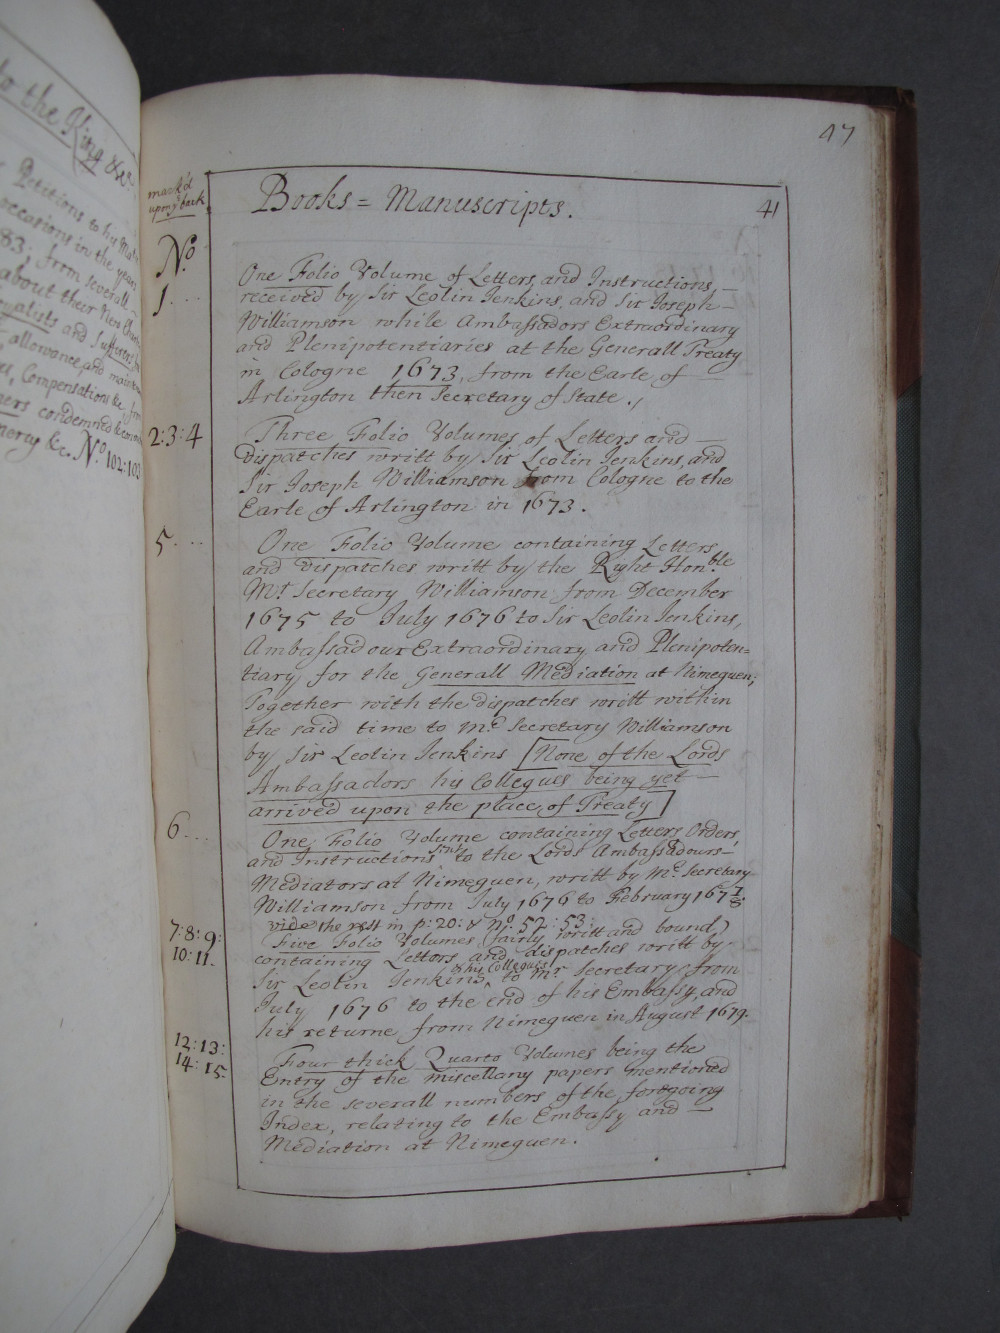 to the King &c.
Petitions to his Ma
occasions in the years
83; from severall
about their New Char
oyalists and Suffrers
allowance, and main
Compensations &c. from
condemned &
mercy &c. No. 102:103
47
mark'd
upon ye back
Books = Manuscripts.
41
No
1 . . .
One Folio Volume of Letters, and Instructions, –
received by Sir Leolin Jenkins, and Sir Joseph –
Williamson while Ambassadors Extraordinary
and Plenipotentiaries at the Generall Treaty
in Cologne 1673, from the Earle of —
Arlington then Secretary of State.,
2:3:4
Three Folio Volumes of Letters and —
Dispatches writt by Sir Leolin Jenkins, and
Sir Joseph Williamson from Cologne to the
Earle of Arlington in 1673.
5 . . .
One Folio Volume containing Letters
and Dispatches writt by the Right Hon.ble
Mr. Secretary Williamson from December
1675 to July 1676 to Sir Leolin Jenkins,
Ambassadour Extraordinary and Plenipoten=
tiary for the Generall Mediation at Nimeguen;
Together with the dispatches writt within
the said time to Mr. Secretary Williamson
by Sir Leolin Jenkins [None of the Lords
Ambassadors his Collegues being yet —
arrived upon the place of Treaty]
6 . . .
One Folio Volume containing Letters, Orders,
and Instructions sent to the Lords Ambassadours –
Mediators at Nimeguen, writt by Mr. Secretary
Williamson from July 1676 to February 167 7/8.
vide the rest in p: 20: & No. 52: 53:
7:8:9:
10:11.
Five Folio Volumes (fairly writt and bound,)
containing Letters and dispatches writt by
Sir Leolin Jenkins, & his Collegues to Mr Secretary from
July 1676 to the end of his Embassy, and
his returne from Nimeguen in August 1679.
12:13:
14:15.
Four thick Quarto Volumes being the
Entry of the miscellany papers mentioned
in the severall numbers of the foregoing
Index, relating to the Embassy and —
Mediation at Nimeguen.